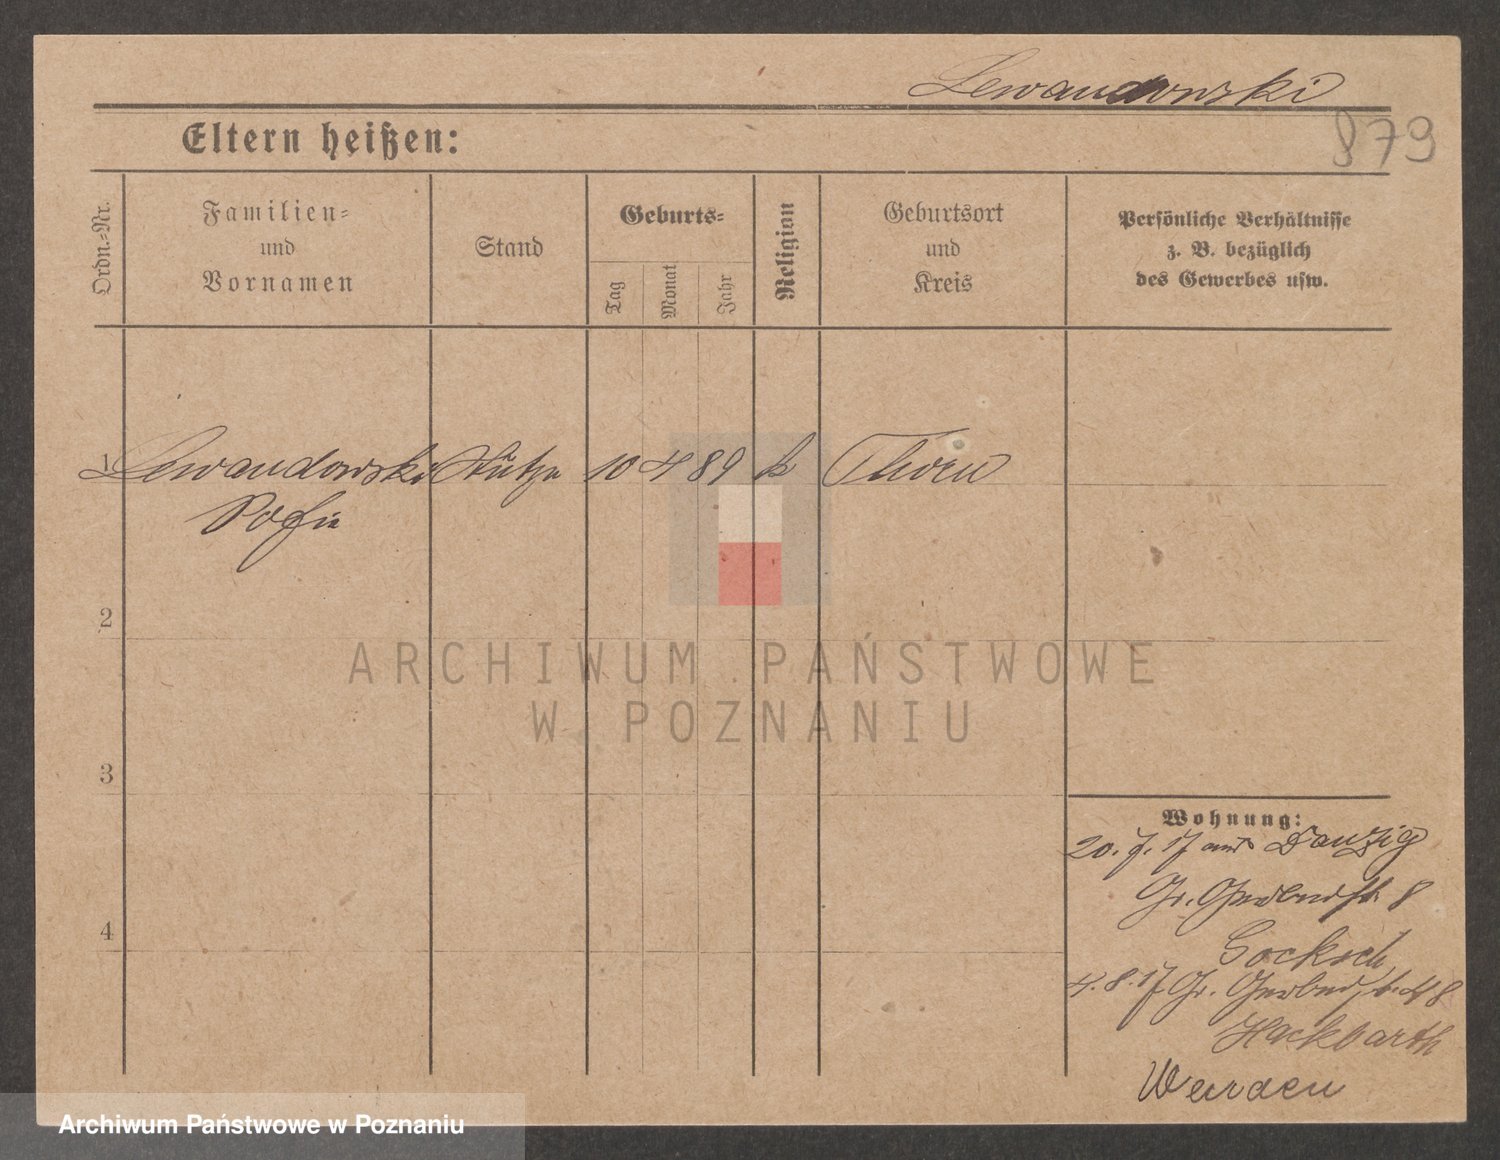 Lewandowski
879
Eltern heißen:
Ordn.=Nr.
Familien=
und
Vornamen
Stand
Geburts=
Tag
Monat
Jahr
Religion
Geburtsort
und
Kreis
Persönliche Verhältnisse
z. B. bezüglich
des Gewerbes usw.
1 Lewandowski Stütze 10 4 89 k Thorn
Sofie
2
3
4
Wohnung:
20. 7. 17 aus Danzig
Gr. Gerberstr. 8
4. 8. 17 Gr. Gerberstr. 48
Hackbarth
ARCHIWUM PAŃSTWOWE
W POZNANIU
Archiwum Państwowe w Poznaniu